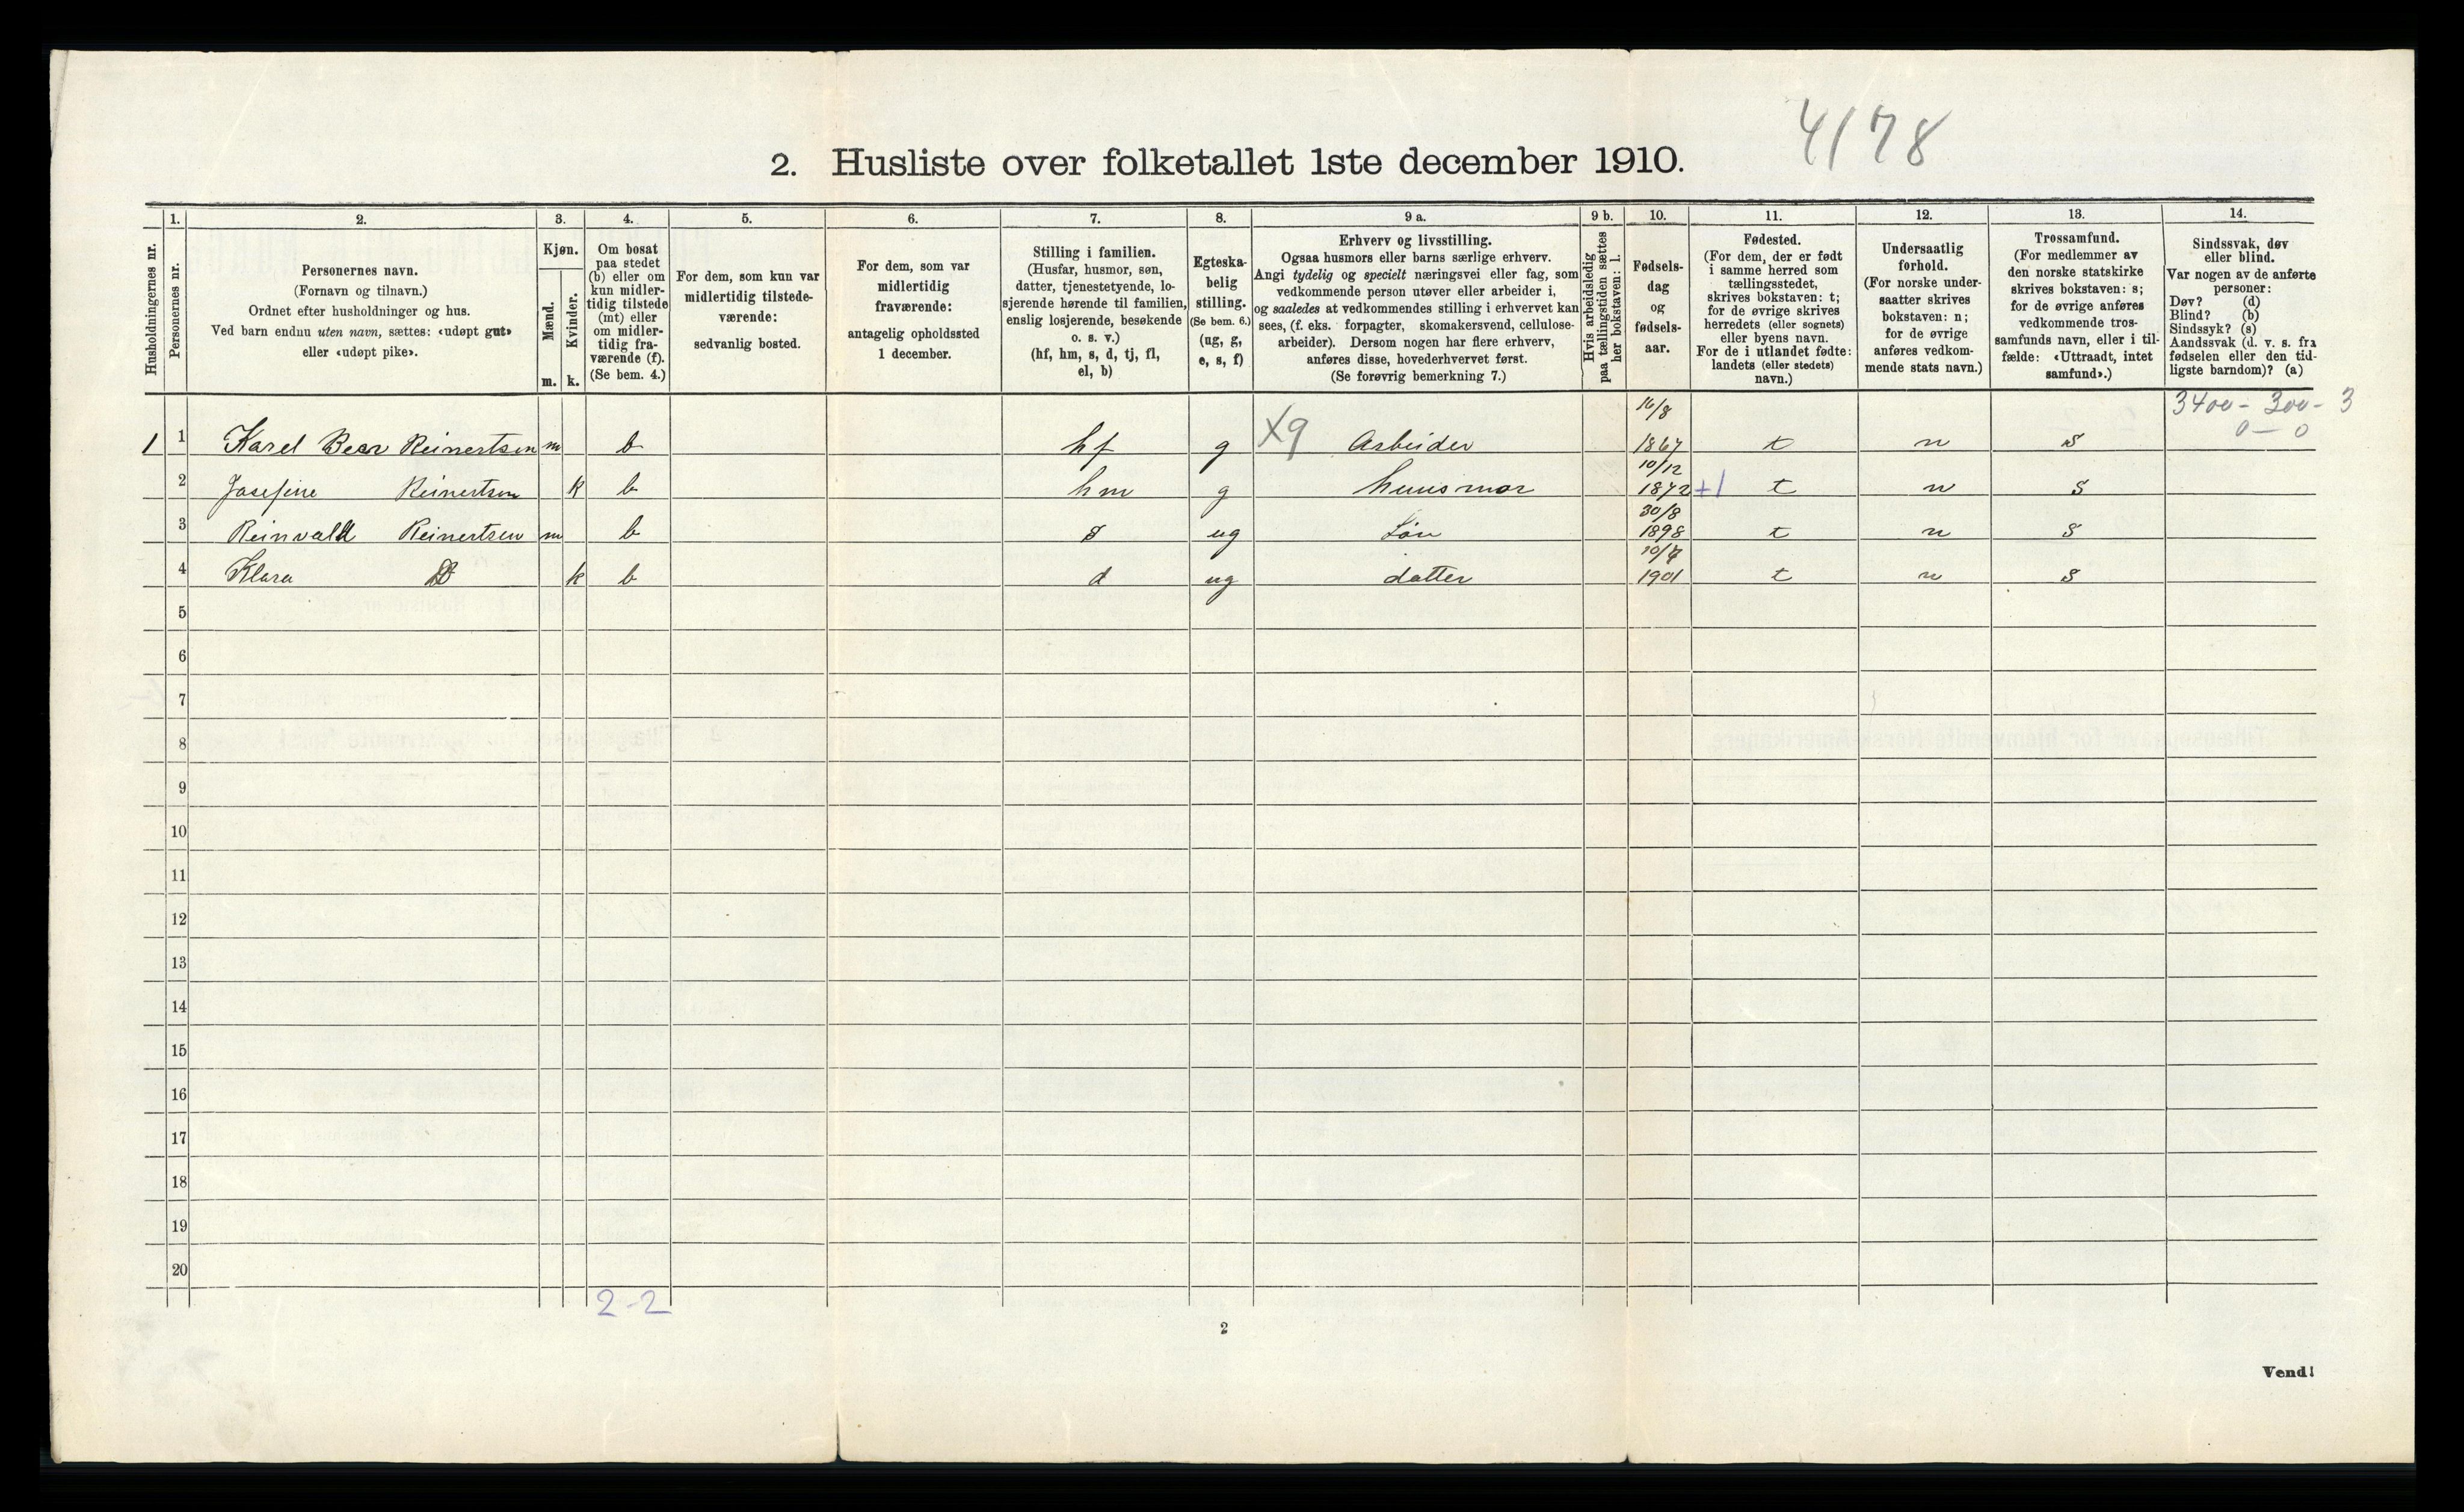 4/78
2. Husliste over folketallet 1ste december 1910.
Husholdningernes nr.
1.
Personernes nr.
2.
Personernes navn.
(Fornavn og tilnavn.)
Ordnet efter husholdninger og hus.
Ved barn endnu uten navn, sættes: «udøpt gut»
eller «udøpt pike».
3.
Kjøn.
Mænd.
Kvinder.
m. k.
4.
Om bosat
paa stedet
(b) eller om
kun midler-
tidig tilstede
(mt) eller
om midler-
tidig fra-
værende (f).
(Se bem. 4.)
5.
For dem, som kun var
midlertidig tilstede-
værende:
sedvanlig bosted.
6.
For dem, som var
midlertidig
fraværende:
antagelig opholdssted
1 december.
7.
Stilling i familien.
(Husfar, husmor, søn,
datter, tjenestetyende, lo-
sjerende hørende til familien,
enslig losjerende, besøkende
o. s. v.)
(hf, hm, s, d, tj, fl,
el, b)
8.
Egteska-
belig
stilling.
(Se bem. 6.)
(ug, g,
e, s, f)
9 a.
Erhverv og livsstilling.
Ogsaa husmors eller barns særlige erhverv.
Angi tydelig og specielt næringsvei eller fag, som
vedkommende person utøver eller arbeider i,
og saaledes at vedkommendes stilling i erhvervet kan
sees, (f. eks. forpagter, skomakersvend, cellulose-
arbeider). Dersom nogen har flere erhverv,
anføres disse, hovederhvervet først.
(Se forøvrig bemerkning 7.)
9 b.
Hvis arbeidsledig
paa tællingstiden sættes
her bokstaven: l.
10.
Fødsels-
dag
og
fødsels-
aar.
11.
Fødested.
(For dem, der er født
i samme herred som
tællingsstedet,
skrives bokstaven: t;
for de øvrige skrives
herredets (eller sognets)
eller byens navn.
For de i utlandet fødte:
landets (eller stedets)
navn.)
12.
Undersaatlig
forhold.
(For norske under-
saatter skrives
bokstaven: n;
for de øvrige
anføres vedkom-
mende stats navn.)
13.
Trossamfund.
(For medlemmer av
den norske statskirke
skrives bokstaven: s;
for de øvrige anføres
vedkommende tros-
samfunds navn, eller i til-
fælde: «Uttraadt, intet
samfund».)
14.
Sindssvak, døv
eller blind.
Var nogen av de anførte
personer:
Døv? (d)
Blind? (b)
Sindssyk? (s)
Aandssvak (d. v. s. fra
fødselen eller den tid-
ligste barndom)? (a)
3400 - 300 - 3
0 - 0
1 1 Karel Bear Reinertsen m b hf g X9 Arbeider 16/8 1867 t n s
2 Josefine Reinertsen k b hm g huusmor 10/12 1872 +1 t n s
3 Reinvald Reinertsen m b s ug Søn 30/8 1898 t n s
4 Klara D k b d ug datter 10/7 1901 t n s
5
6
7
8
9
10
11
12
13
14
15
16
17
18
19
20
2-2
2
Vend!